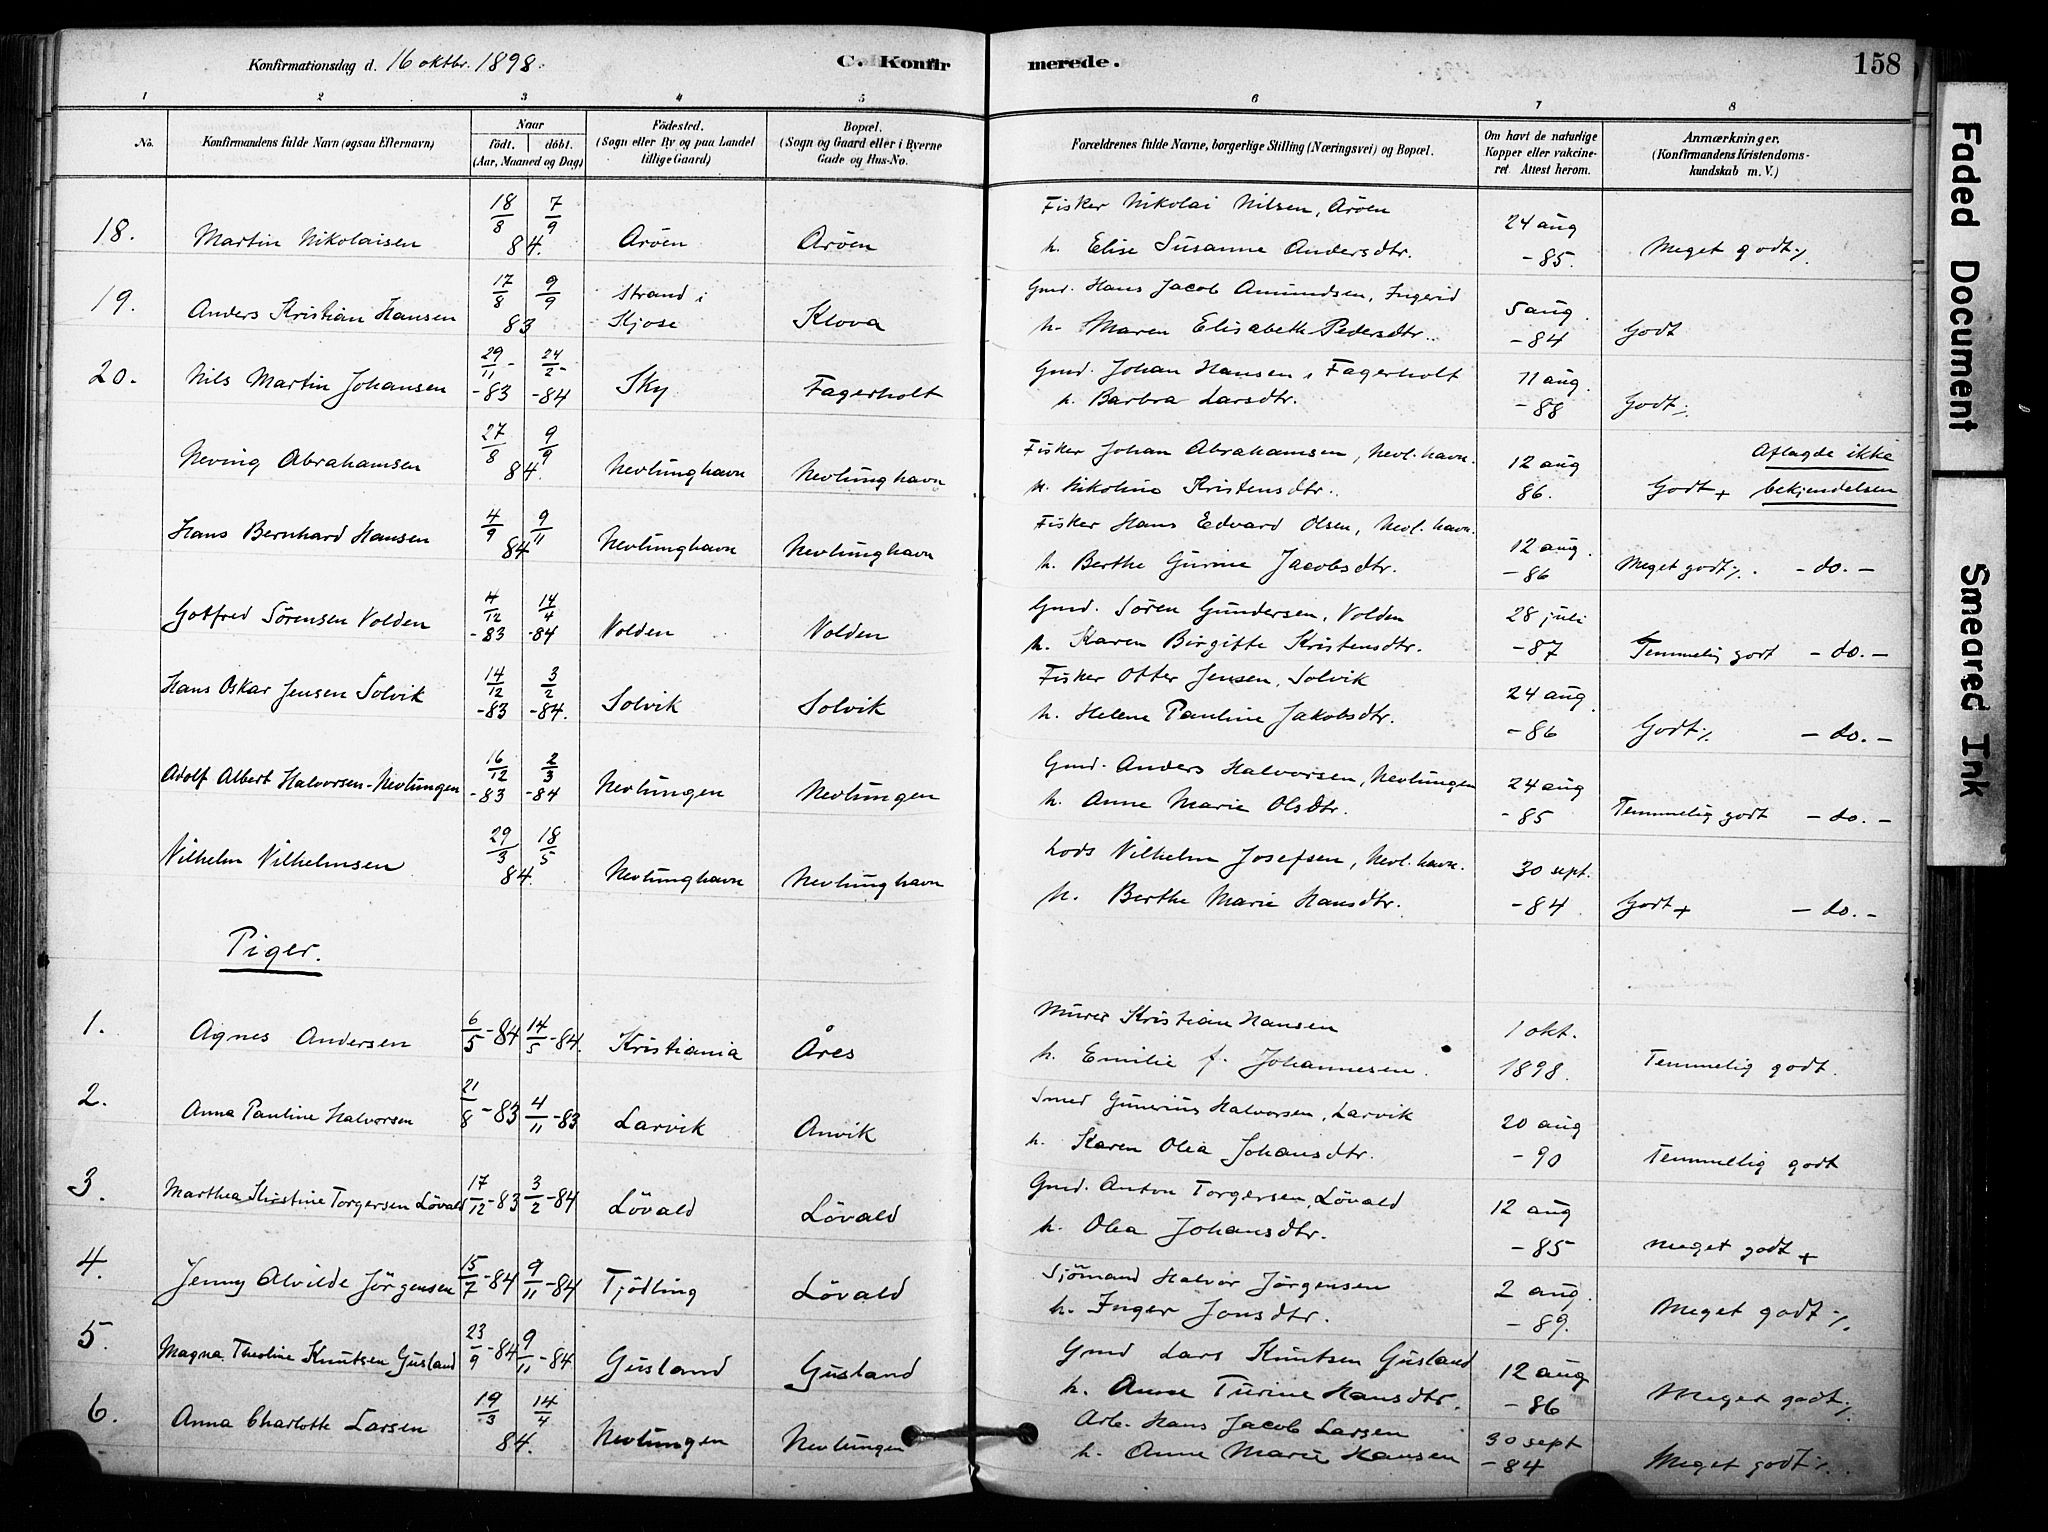 Konfirmationsdag d. 16 oktbr. 1898. C. Konfirmerede. 158
1 2 3 4 5 6 7 8
No. Konfirmandens fulde Navn (ogsaa Efternavn) Naar født. døbt. (Aar, Maaned og Dag) Födested. (Sogn eller By og paa Landet tillige Gaard) Bopæl. (Sogn og Gaard eller i Byerne Gade og Hus-No. Forældrenes fulde Navne, borgerlige Stilling (Næringsvei) og Bopæl. Om havt de naturlige Kopper eller vakcineret. Attest herom. Anmærkninger. (Konfirmandens Kristendomskundskab m. V.)
18. Martin Nikolaisen 18/8 84. 7/9 Aröen Aröen Fisker Nikolai Nilsen, Aröen 24 aug
h. Elise Susanne Andersdtr. -85. Meget godt %
19. Anders Kristian Hansen 17/8 83 9/9 Strand i Kjose Klova Gmd. Hans Jacob Amundsen, Ingerid 5 aug.
h. Maren Elisabeth Pedersdtr. -84 Godt
20. Nils Martin Johansen 29/11 -83 24/2 -84 Sky Fagerholt Gmd. Johan Hansen, Fagerholt 11 aug.
h. Barbra Larsdtr. -88 Godt %
Neving Abrahamsen 27/8 84. 9/9 Nevlunghavn Nevlunghavn Fisker Johan Abrahamsen, Nevl. havn. 12 aug Aflagde ikke
h. Nikoline Kristensdtr. 86. Godt + bekjendelsen
Hans Bernhard Hansen 4/9 84 9/11 Nevlunghavn Nevlunghavn Fisker Hans Edvard Olsen, Nevl. havn. 12 aug.
h. Berthe Gurine Jacobsdtr. -86 Meget godt %. - do. -
Gotfred Sörensen Volden 4/12 -83 14/4 -84 Volden Volden Gmd. Sören Gundersen, Volden 28 juli
h. Karen Birgitte Kristensdtr. -87 Temmelig godt - do. -
Hans Oskar Jensen Solvik 14/12 -83 3/2 -84. Solvik Solvik Fisker Otter Jensen, Solvik 24 aug.
h. Helene Pauline Jakobsdtr. -86 Godt % - do. -
Adolf Albert Halvorsen-Nevlungen 16/12 -83 2/3 -84 Nevlungen Nevlungen Gmd. Anders Halvorsen, Nevlungen 24 aug
h. Anne Marie Olsdtr. -85 Temmelig godt - do. -
Vilhelm Vilhelmsen 29/3 84. 18/5 Nevlunghavn Nevlunghavn Lods Vilhelm Josefsen, Nevl. havn. 30 sept.
h. Berthe Marie Hansdtr. -84 Godt + - do. -
Piger.
1. Agnes Andersen 6/5 -84 14/5 -84. Kristiania Åres Murer Kristian Hansen 1 okt.
h. Emilie f. Johannesen. 1898. Temmelig godt.
2. Anna Pauline Halvorsen 21/8 -83 4/11 -83 Larvik Anvik Smed Gunerius Halvorsen, Larvik 20 aug
h. Karen Olea Johansdtr. -90 Temmelig godt
3. Marthea Kristine Torgersen Lövald 17/12 -83 3/2 -84 Lövald Lövald Gmd. Anton Torgersen, Lövald 12 aug
h. Olea Johansdtr. -85 Meget godt +
4. Jenny Alvilde Jörgensen 15/7 -84 9/11 -84 Tjödling Lövald Sjömand Halvor Jörgensen 2 aug.
h. Inger Jonsdtr. -89. Meget godt %.
5. Magna Theoline Knutsen Gusland 23/9 -84 9/11 -84. Gusland Gusland Gmd Lars Knutsen Gusland 12 aug
h. Anne Turine Hansdtr. -86 Meget godt %.
6. Anna Charlotte Larsen 19/3 84. 14/4 Nevlungen Nevlungen Arb. Hans Jacob Larsen 30 sept
h. Anne Marie Hansen -84 Meget godt %.
Faded Document
Smeared Ink